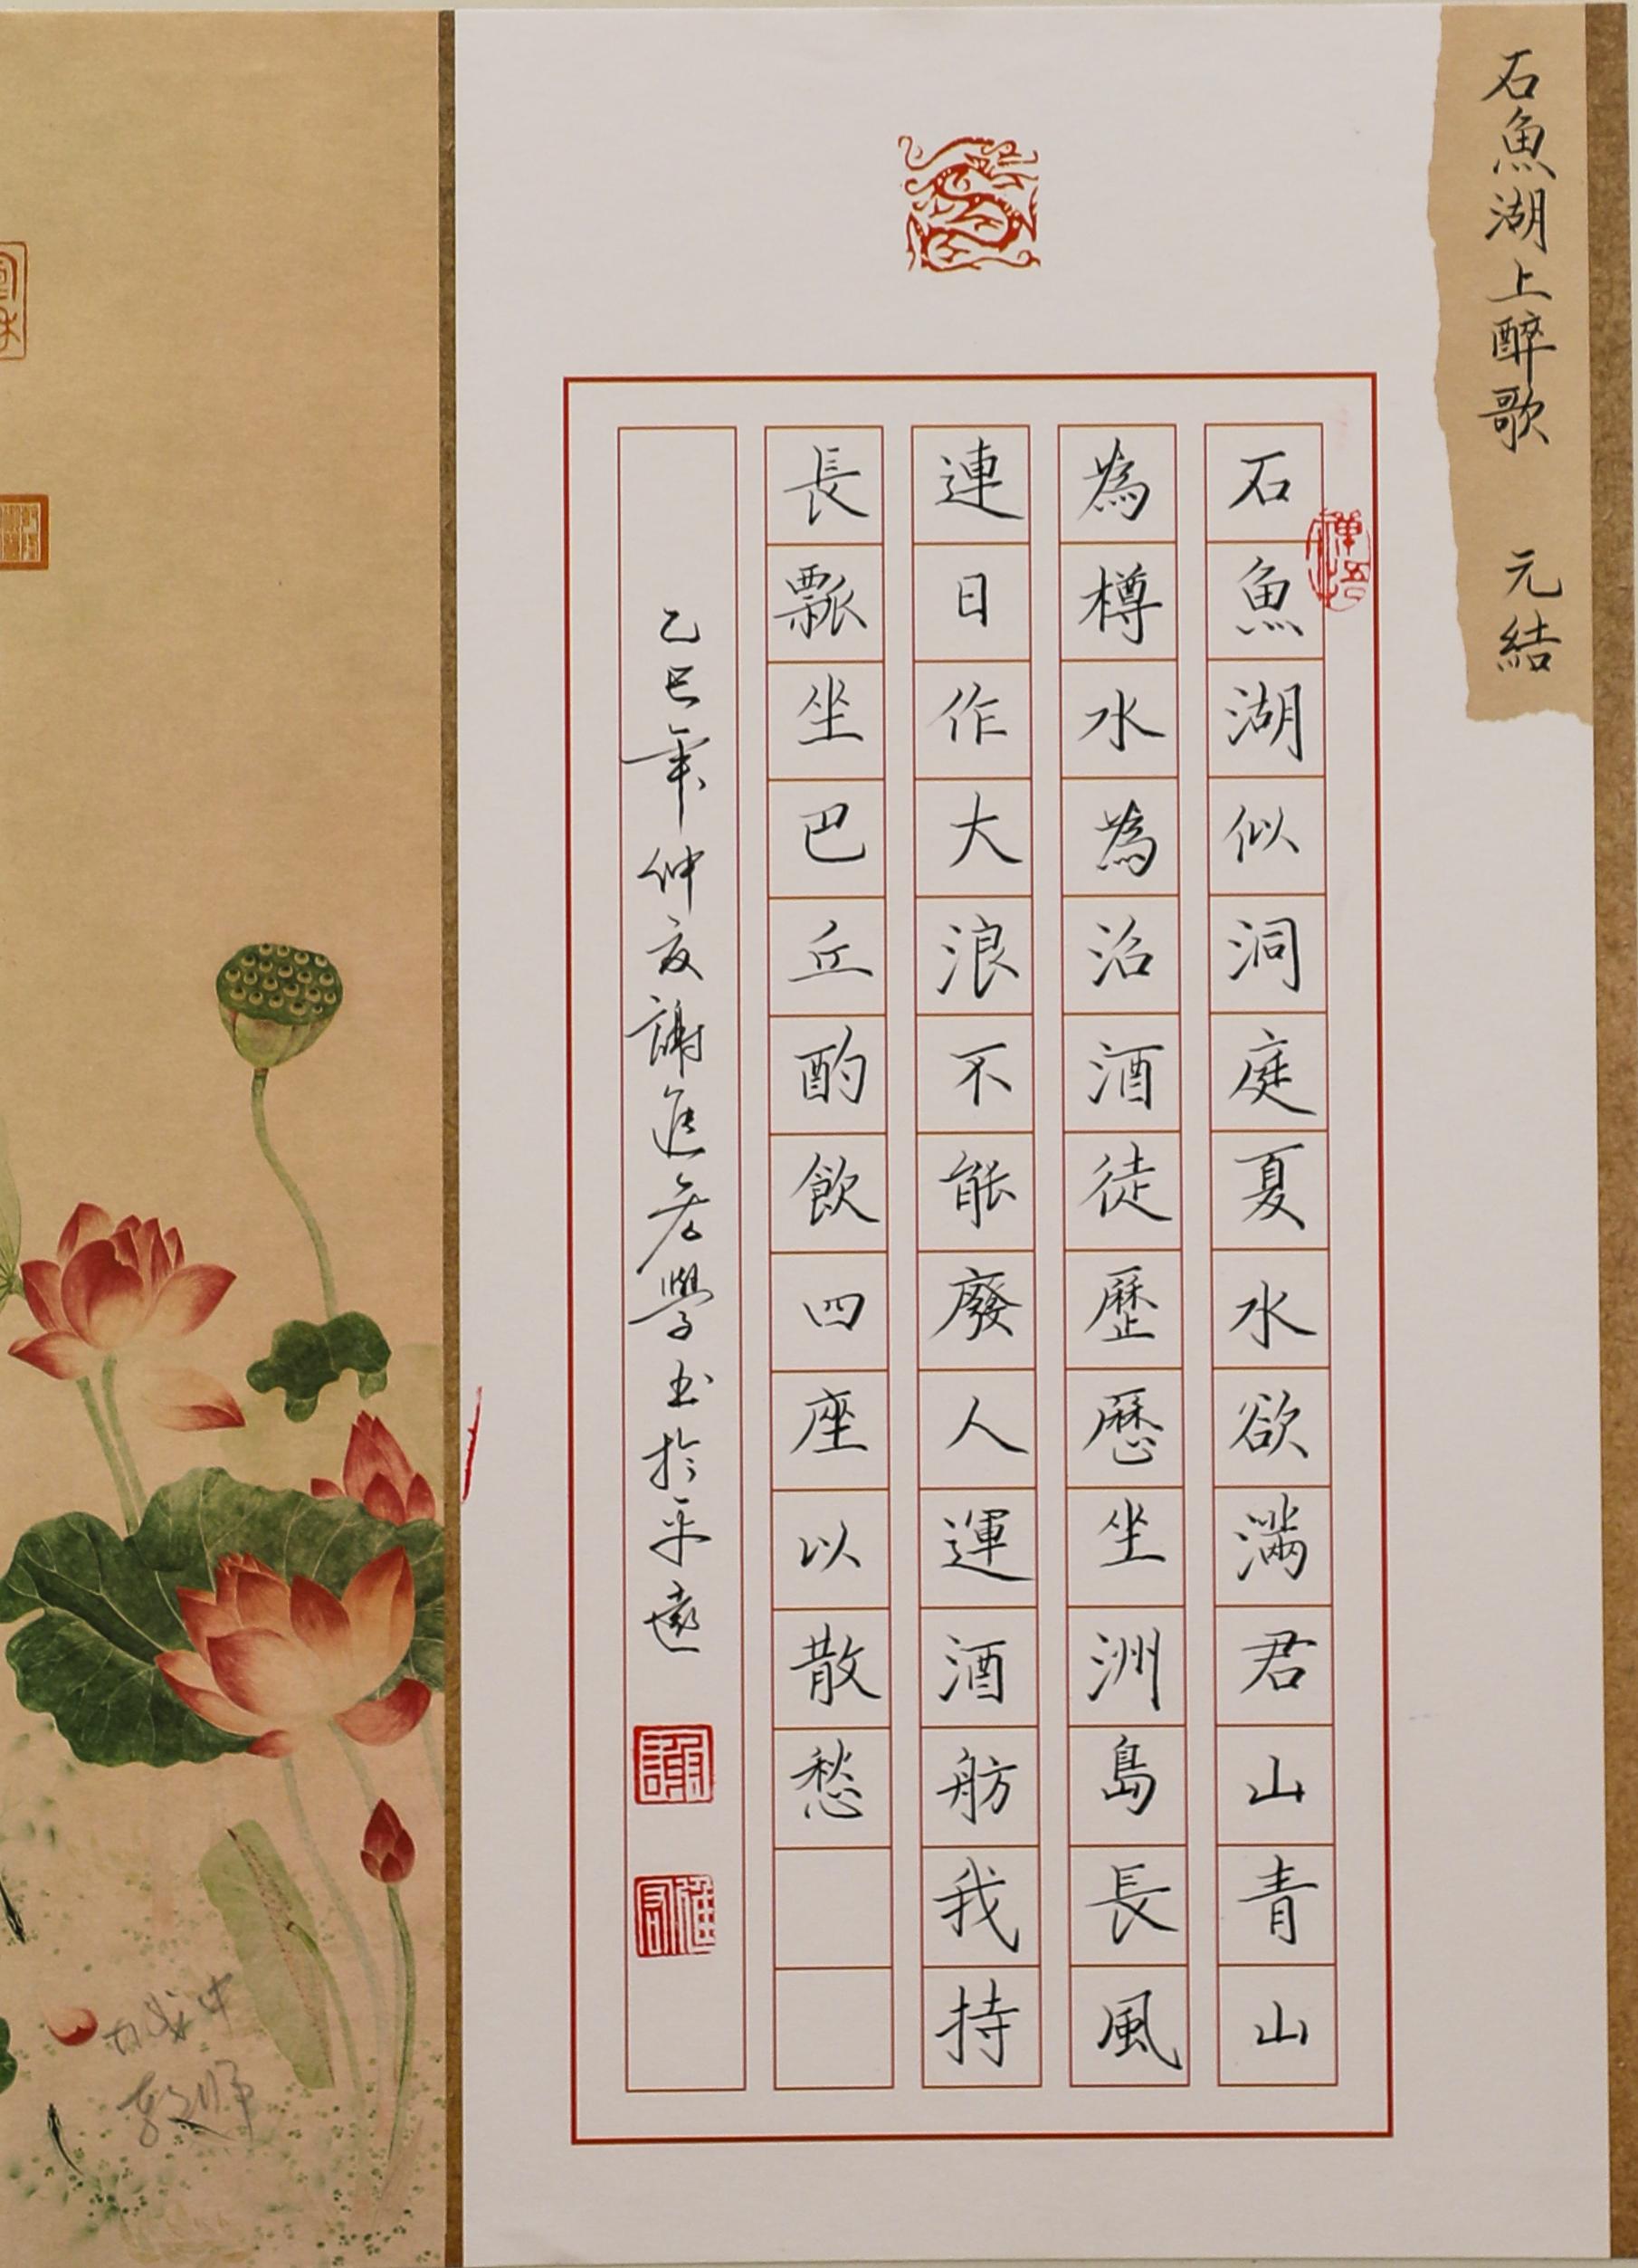 石魚湖上醉歌 元結
石魚湖似洞庭夏水欲滿君山青山
為樽水為沼酒徒歷歷坐洲島長風
連日作大浪不能廢人運酒舫我持
長瓢坐巴丘酌飲四座以散愁
乙巳年仲夏謝進君學书於平遠
禪悟
謝